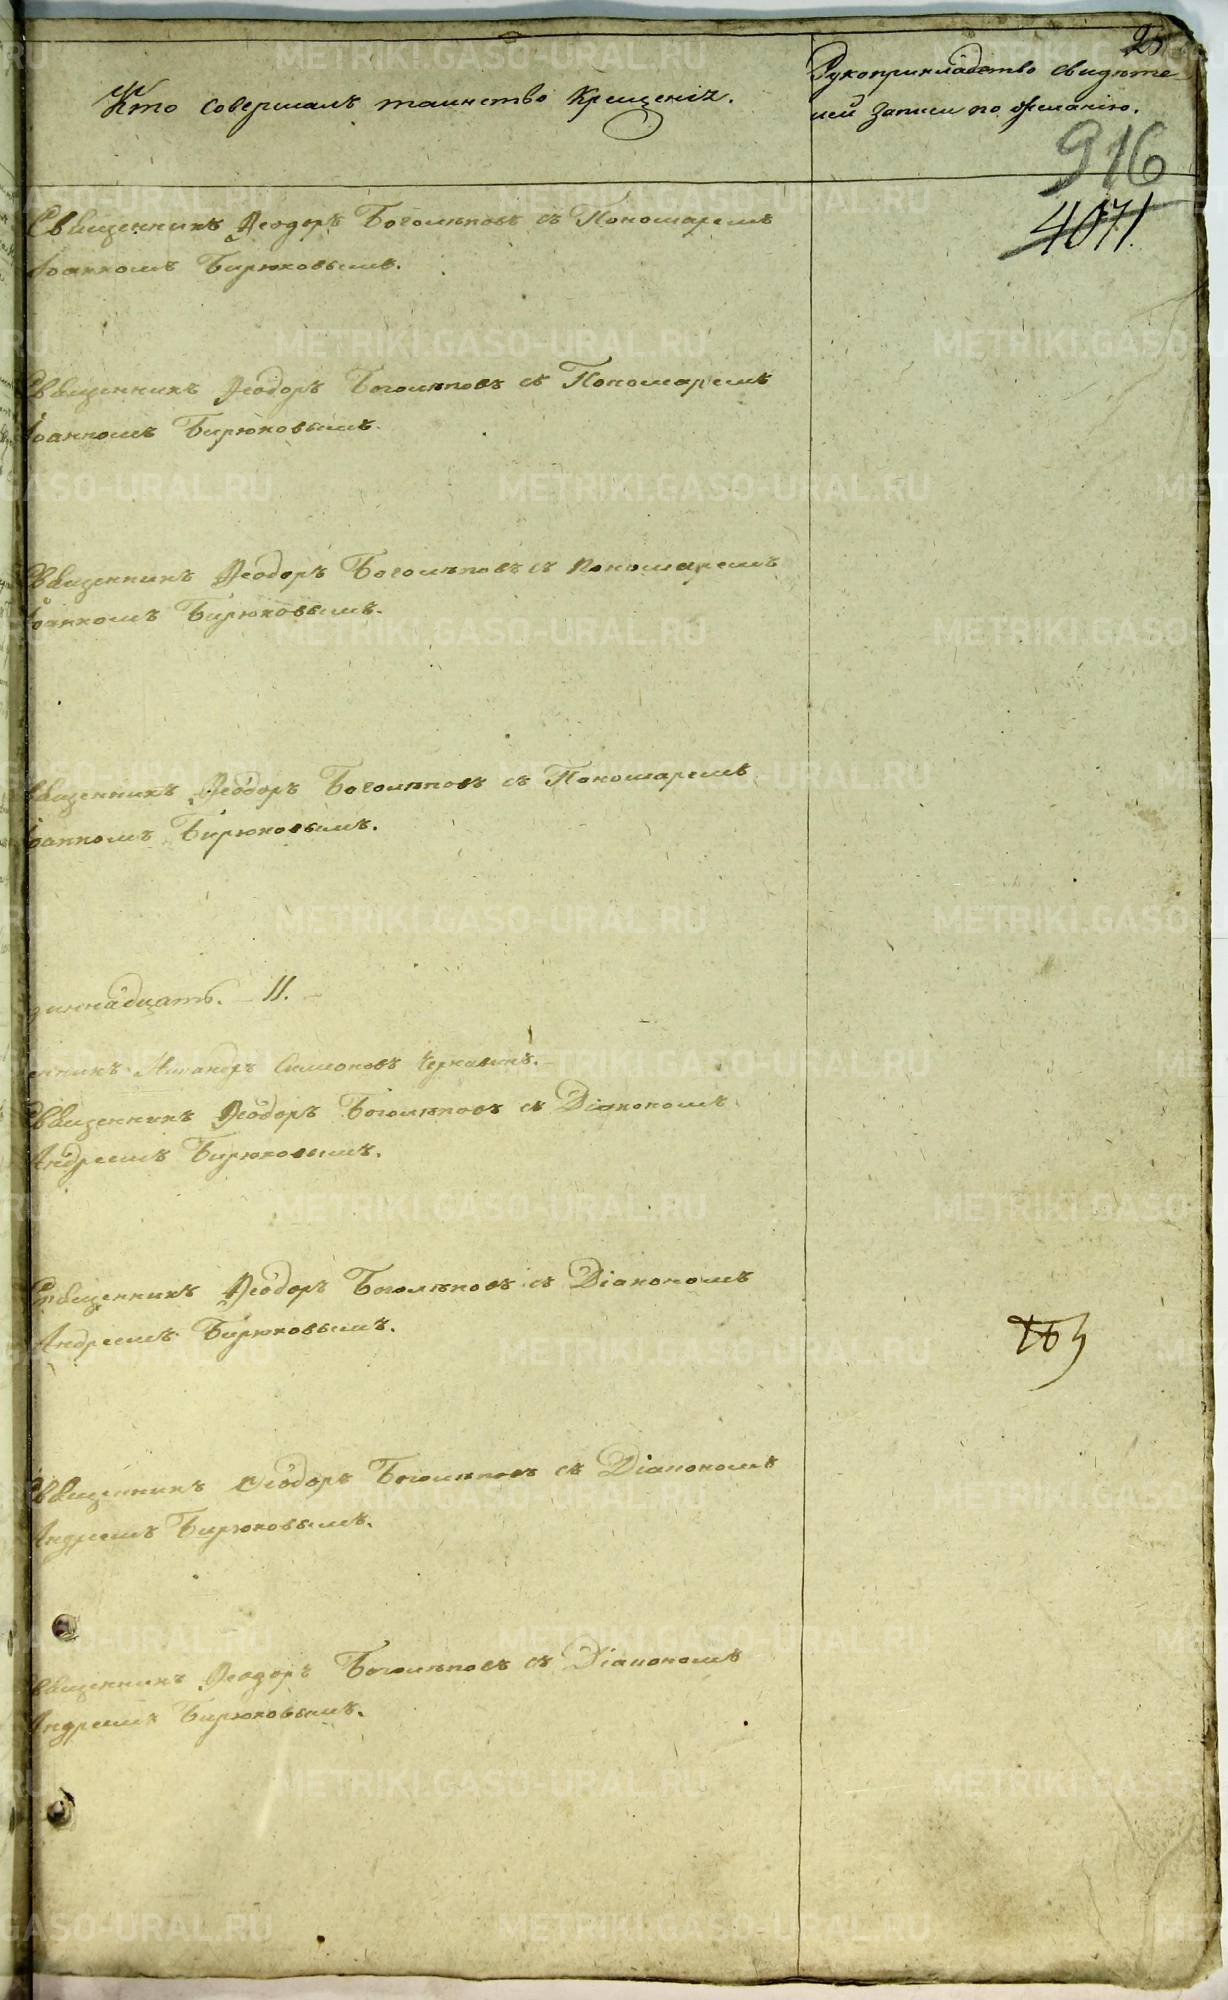 Кто совершалъ таинство Крещенія.
Рукоприкладство свидѣте
лей записи по желанію.
916
4071.
Священникъ Ѳеодоръ Боголѣповъ съ Пономаремъ
Іоанномъ Бирюковымъ.
Священникъ Ѳеодоръ Боголѣповъ съ Пономаремъ
Іоанномъ Бирюковымъ.
Священникъ Ѳеодоръ Боголѣповъ съ Пономаремъ
Іоанномъ Бирюковымъ.
Священникъ Ѳеодоръ Боголѣповъ съ Пономаремъ
Іоанномъ Бирюковымъ.
диннадцать. – 11. –
енникъ Никандръ Симоновъ Чернавинъ. –
Священникъ Ѳеодоръ Боголѣповъ съ Діакономъ
Андреемъ Бирюковымъ.
Священникъ Ѳеодоръ Боголѣповъ съ Діакономъ
Андреемъ Бирюковымъ.
Священникъ Ѳеодоръ Боголѣповъ съ Діакономъ
Андреемъ Бирюковымъ.
Священникъ Ѳеодоръ Боголѣповъ съ Діакономъ
Андреемъ Бирюковымъ.
METRIKI.GASO-URAL.RU